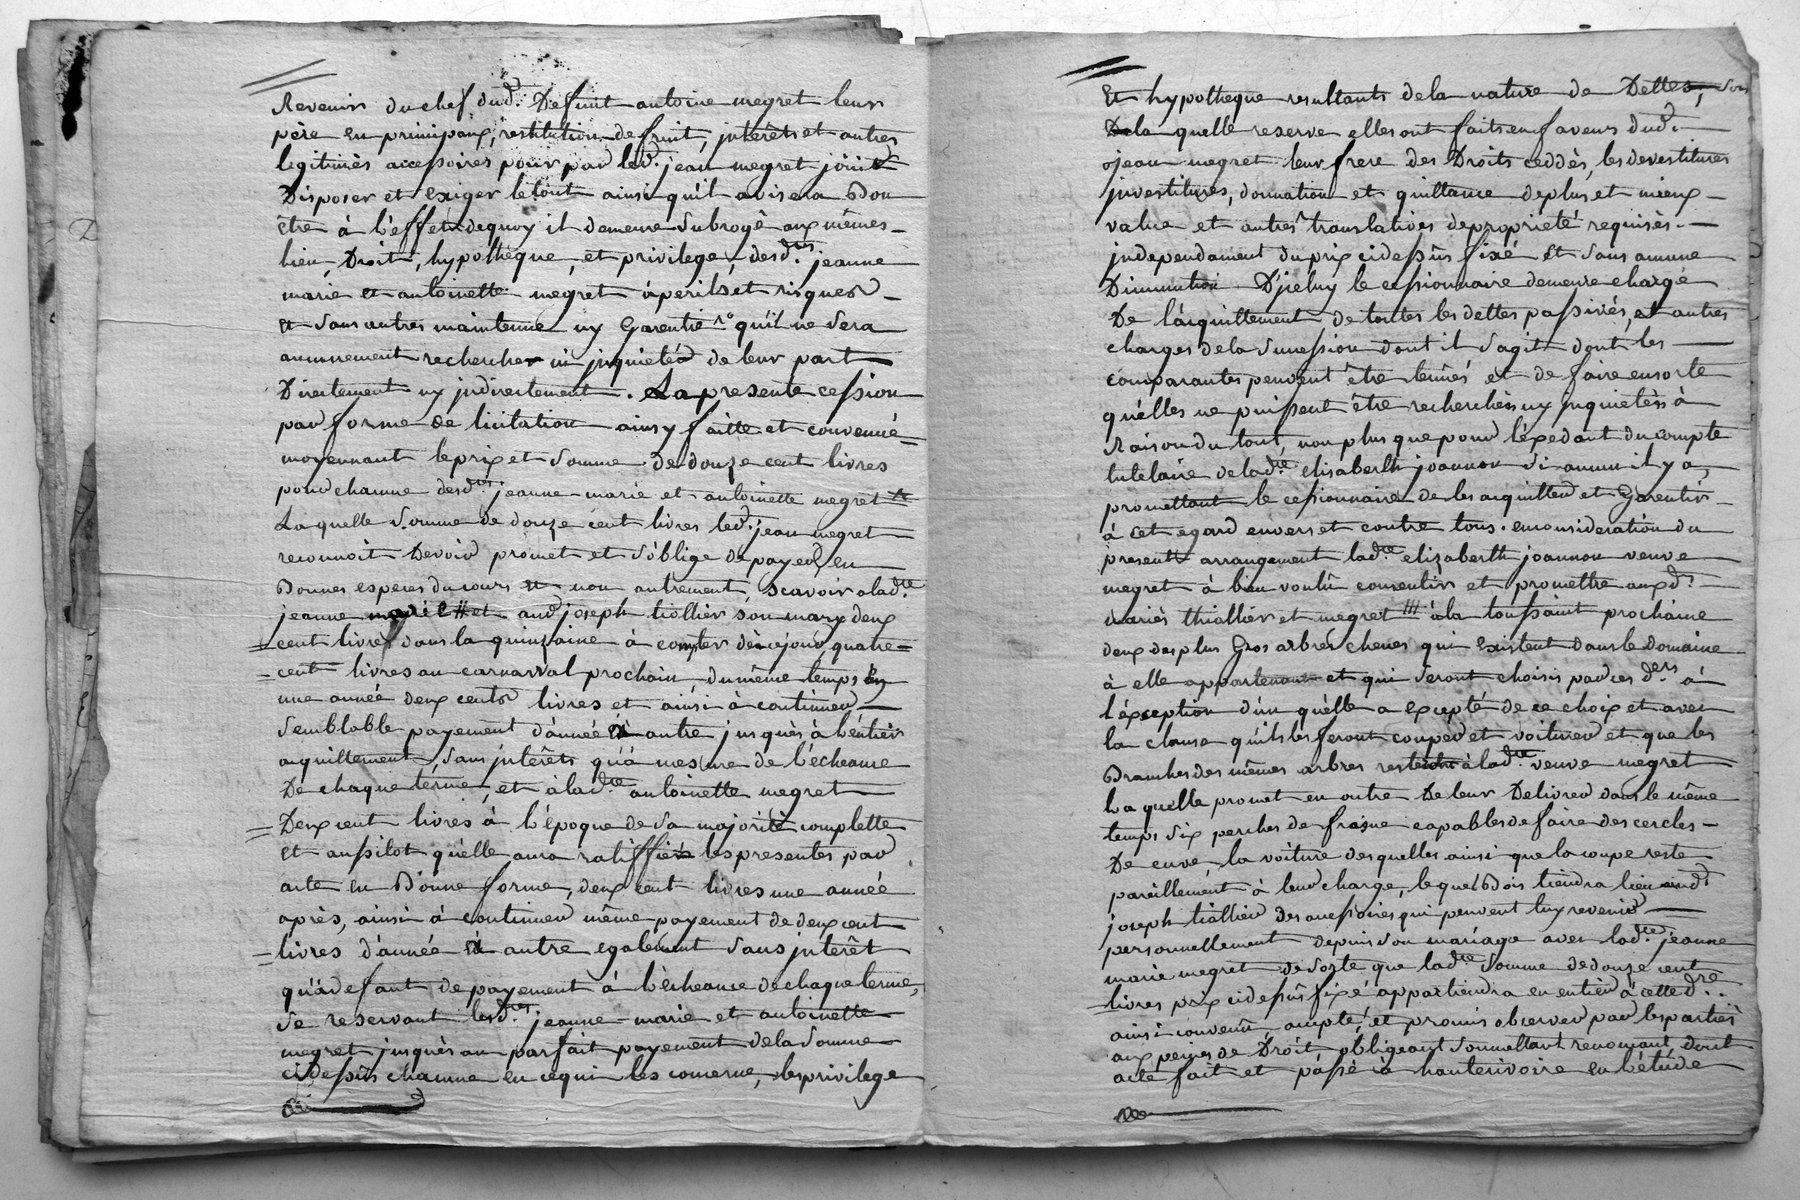 Revenir du chef dud. Defunt antoine megret leur
père en principaux, restitution de fruit, jnterèts et autres
legitimes accessoires pour par led. jean megret jouir
Disposer et exiger le tout ainsi qu'il avisera Bon
être à l'effet dequoy il demeure subrogé aux mêmes
lieu, Droit, hypotheque, et privilege, desd.tes jeanne
marie et antoinette megret à perils et risques
et sans autres maintenue ny Garentie qu'il ne sera
aucunement rechercher ni jnquieté de leur part
Directement ny jndirectement. La presente cession
par forme de licitation ainsy faitte et convenue
moyennant le prix et somme de douze cent livres
pour chacune desd.tes jeanne-marie et antoinette megret
La quelle somme de douze cent livres led. jean megret
reconnoit Devoir promet et s'oblige de payer en
Bonnes especes du cours et non autrement, scavoir a lad.te
jeanne marie # et aud. joseph tiollier son mary deux
cent livres dans la quinzaine à compter dès ce jour, quatre
cent livres au carnaval prochain du même temps en
une année deux cents livres et ainsi à continuer
semblable payement d'année à autre jusqu'à l'entier
aquittement, sans jnterêts qu'à mesure de l'echeance
De chaque terme, et à lad.te antoinette megret
Deux cent livres à l'époque de sa majorité complette
et aussitot qu'elle aura ratiffiée les presentes par
acte en Bonne forme, deux cent livres une année
après, ainsi à continuer même payement de deux cent
livres d'année à autre egalement sans jnterêt
qu'à defaut de payement à l'écheance de chaque terme,
se reservant lesd.tes jeanne-marie et antoinette
megret jusqu'es au parfait payement de la somme
ci dessus chacune en ce qui les concerne, les privilege
Et hypotheque resultants de la nature de Dettes, sous
De la quelle reserve elles ont faits en faveur dud.
jean megret leur frere des Droits ceddés, les devestitures
jnvestitures, donnation et quittance de plus et mieux
value et autres translatives de proprieté requises
jndependament du prix ci dessus fixé et sans aucune
Diminution D'jceluy le cessionnaire demeure chargé
De l'aquittement de toutes les dettes passives, et autres
charges de la succession dont il s'agit dont les
comparantes peuvent être tenues et de faire ensorte
qu'elles ne puissent être recherchées ny jnquietées à
Raison du tout, non plus que pour l'exedant du compte
tutelaire de lad.te elisabeth joannon si aucun il y a,
promettant le cessionnaire de les aquitter et Garentir
à cet egard envers et contre tous. en consideration du
present arrangement lad.te elizabeth joannon veuve
megret à bien voulu consentir et promettre auxd.
mariés thiollier et megret /// à la toussaint prochaine
deux des plus Gros arbres chenes qui existent dans le domaine
à elle appartenant et qui seront choisis par ces d.ers à
l'exception d'un qu'elle a excepté de ce choix et avec
la clause qu'ils les feront couper et voiturer et que les
Branches des mêmes arbres à lad.te veuve megret
La quelle promet en outre De leur Delivrer dans le même
temps six perches de frasne capables de faire des cercles
De cuve la voiture desquelles ainsi que la coupe reste
pareillement à leur charge, lequel Bois tiendra lieu aud.
joseph tiollier des accessoires qui peuvent luy revenir
personnellement depuis son mariage avec lad.te jeanne
marie megret de sorte que lad.te somme de douze cent
livres prix ci dessus fixé appartiendra en entier à cette d.re
ainsi convenu, accepté, et promis observer par les parties
aux peines de Droit obligeant soumettant renonçant dont
acte fait et passé à hauterivoire en l'étude